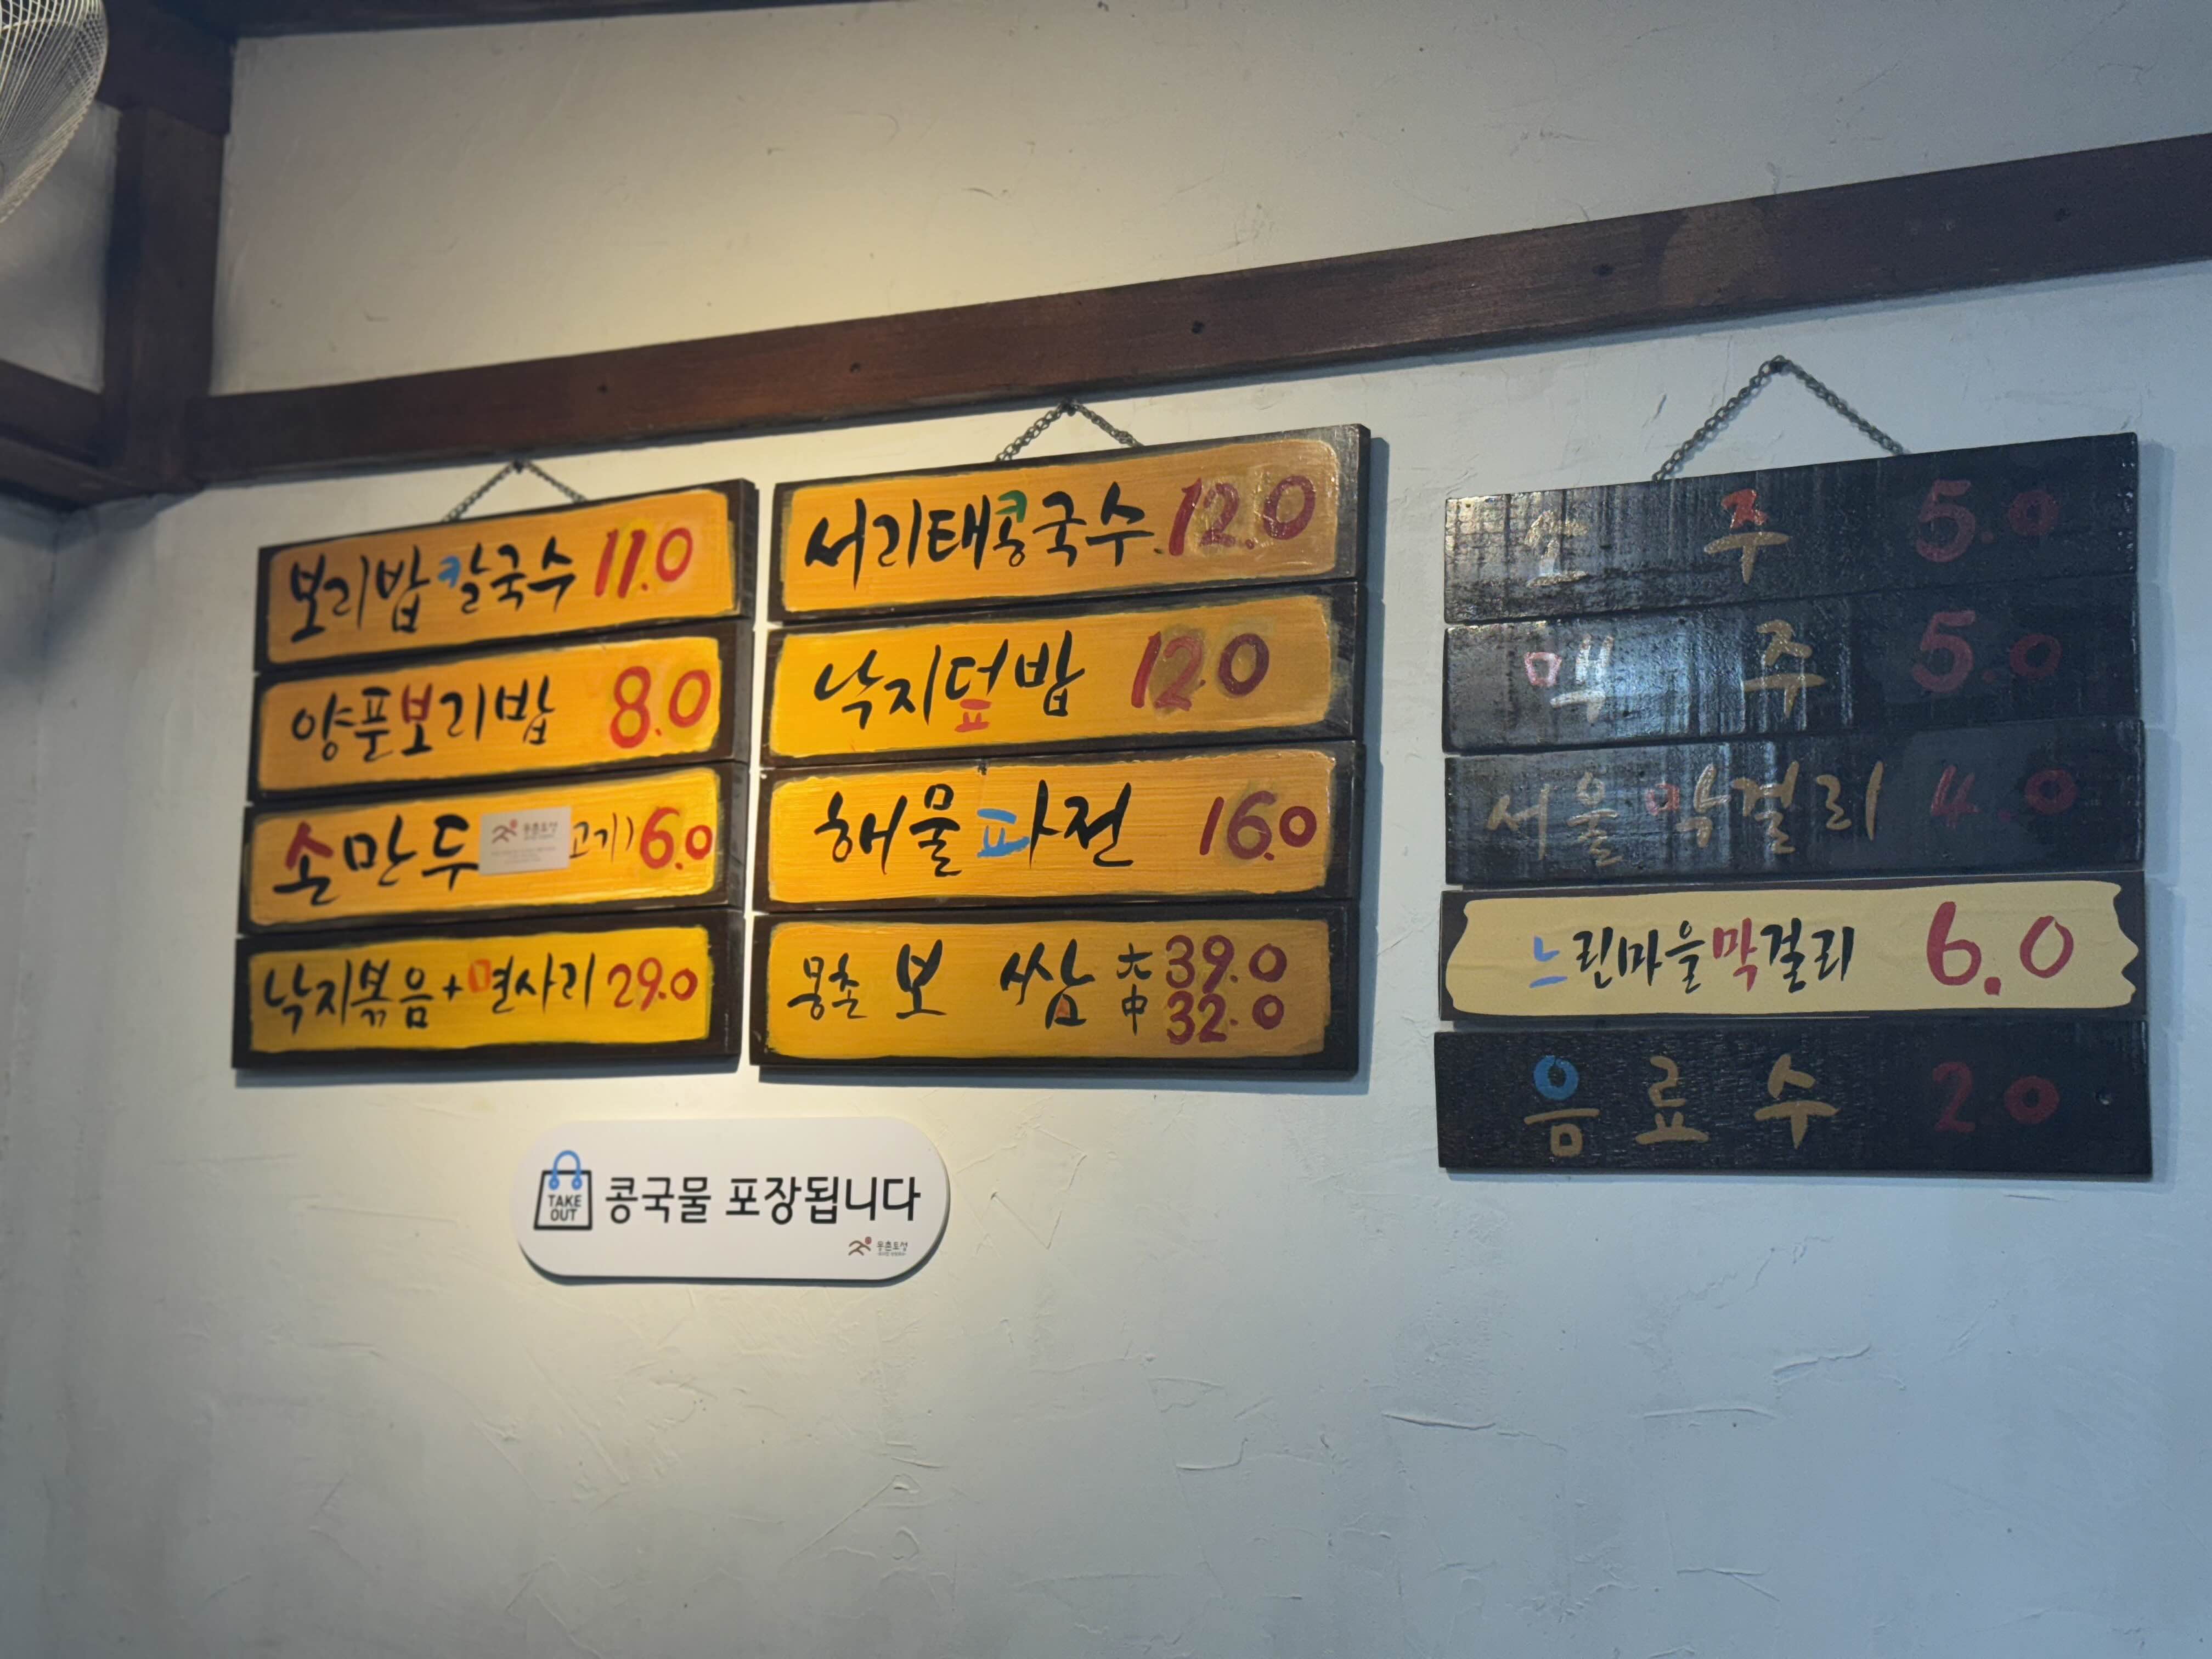 보리밥칼국수 11.0
양푼보리밥 8.0
손만두 고기) 6.0
낙지볶음+면사리 29.0
서리태콩국수 12.0
낙지덮밥 12.0
해물파전 16.0
몽촌 보쌈 大 39.0
中 32.0
소주 5.0
맥주 5.0
서울막걸리 4.0
느린마을막걸리 6.0
음료수 2.0
TAKE
OUT
콩국물 포장됩니다